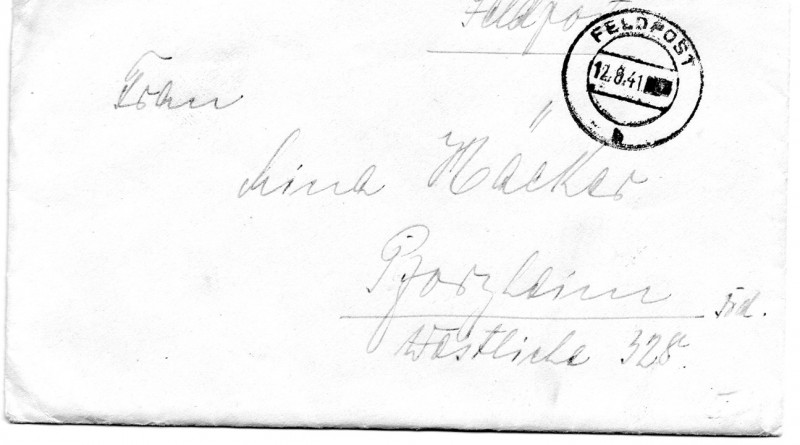 Feldpost
FELDPOST
12.8.41
a
Frau
Mina Häcker
Pforzheim
Westliche 328